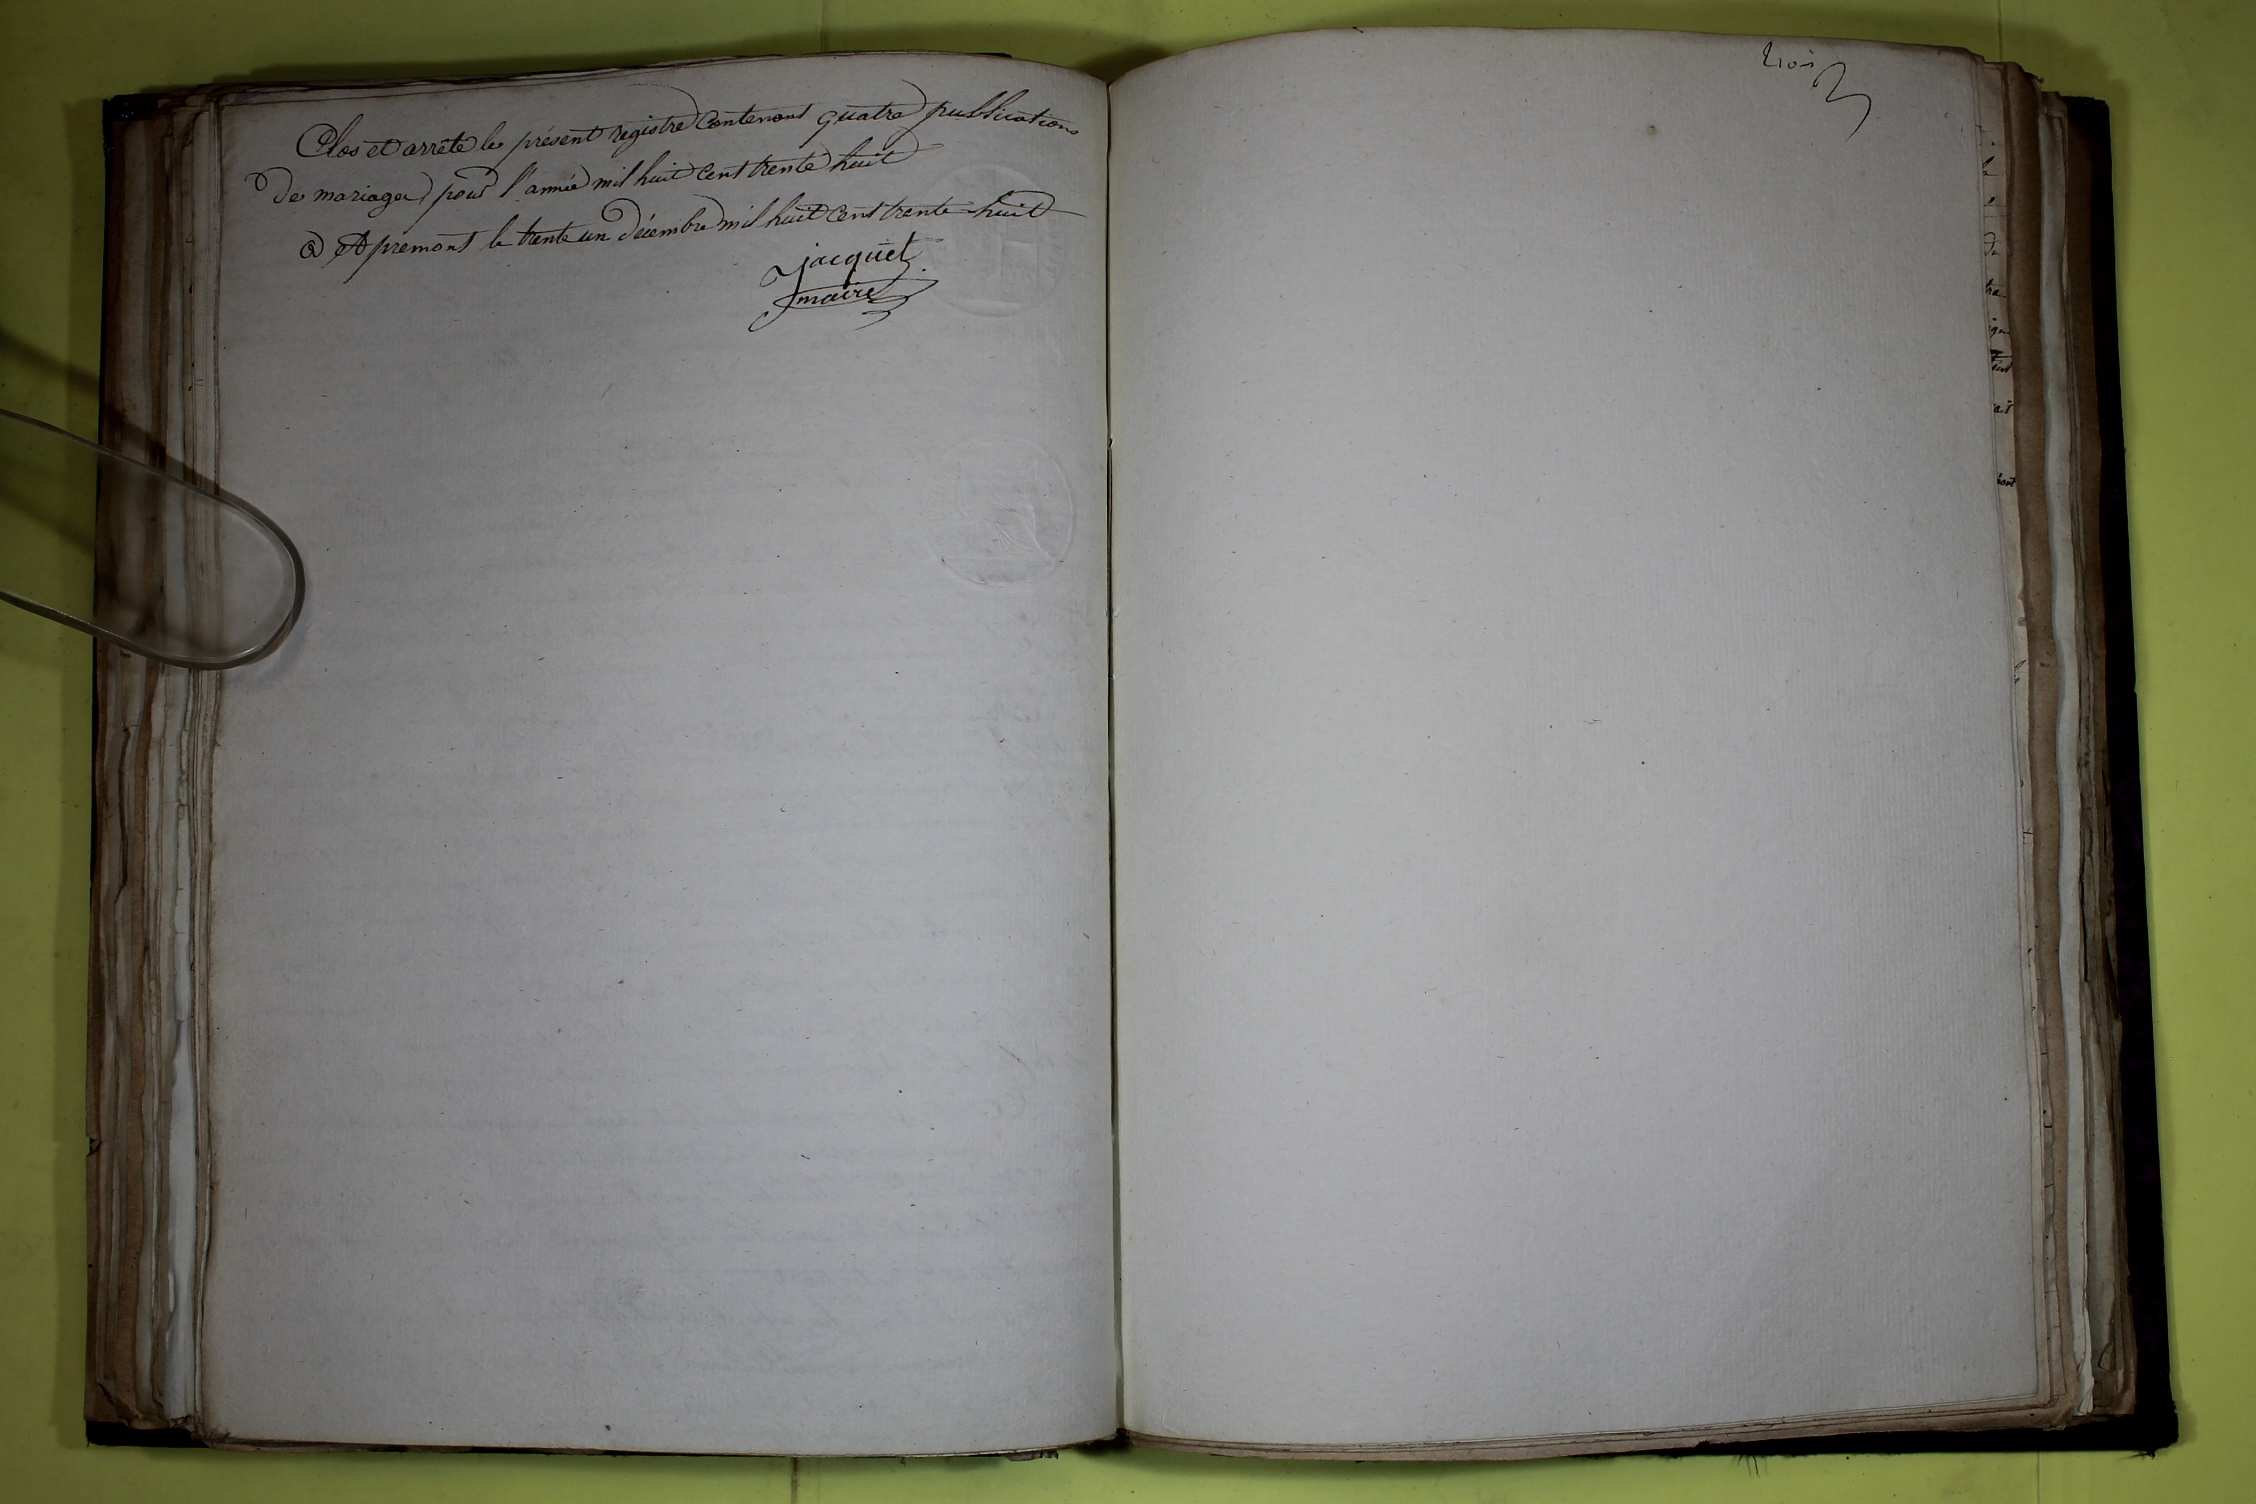 Clos et arrêté le présent registre contenant quatre publications
de mariages pour l'année mil huit cent trente huit
a Apremont le trente un décembre mil huit cent trente huit
jacquet
maire
trois